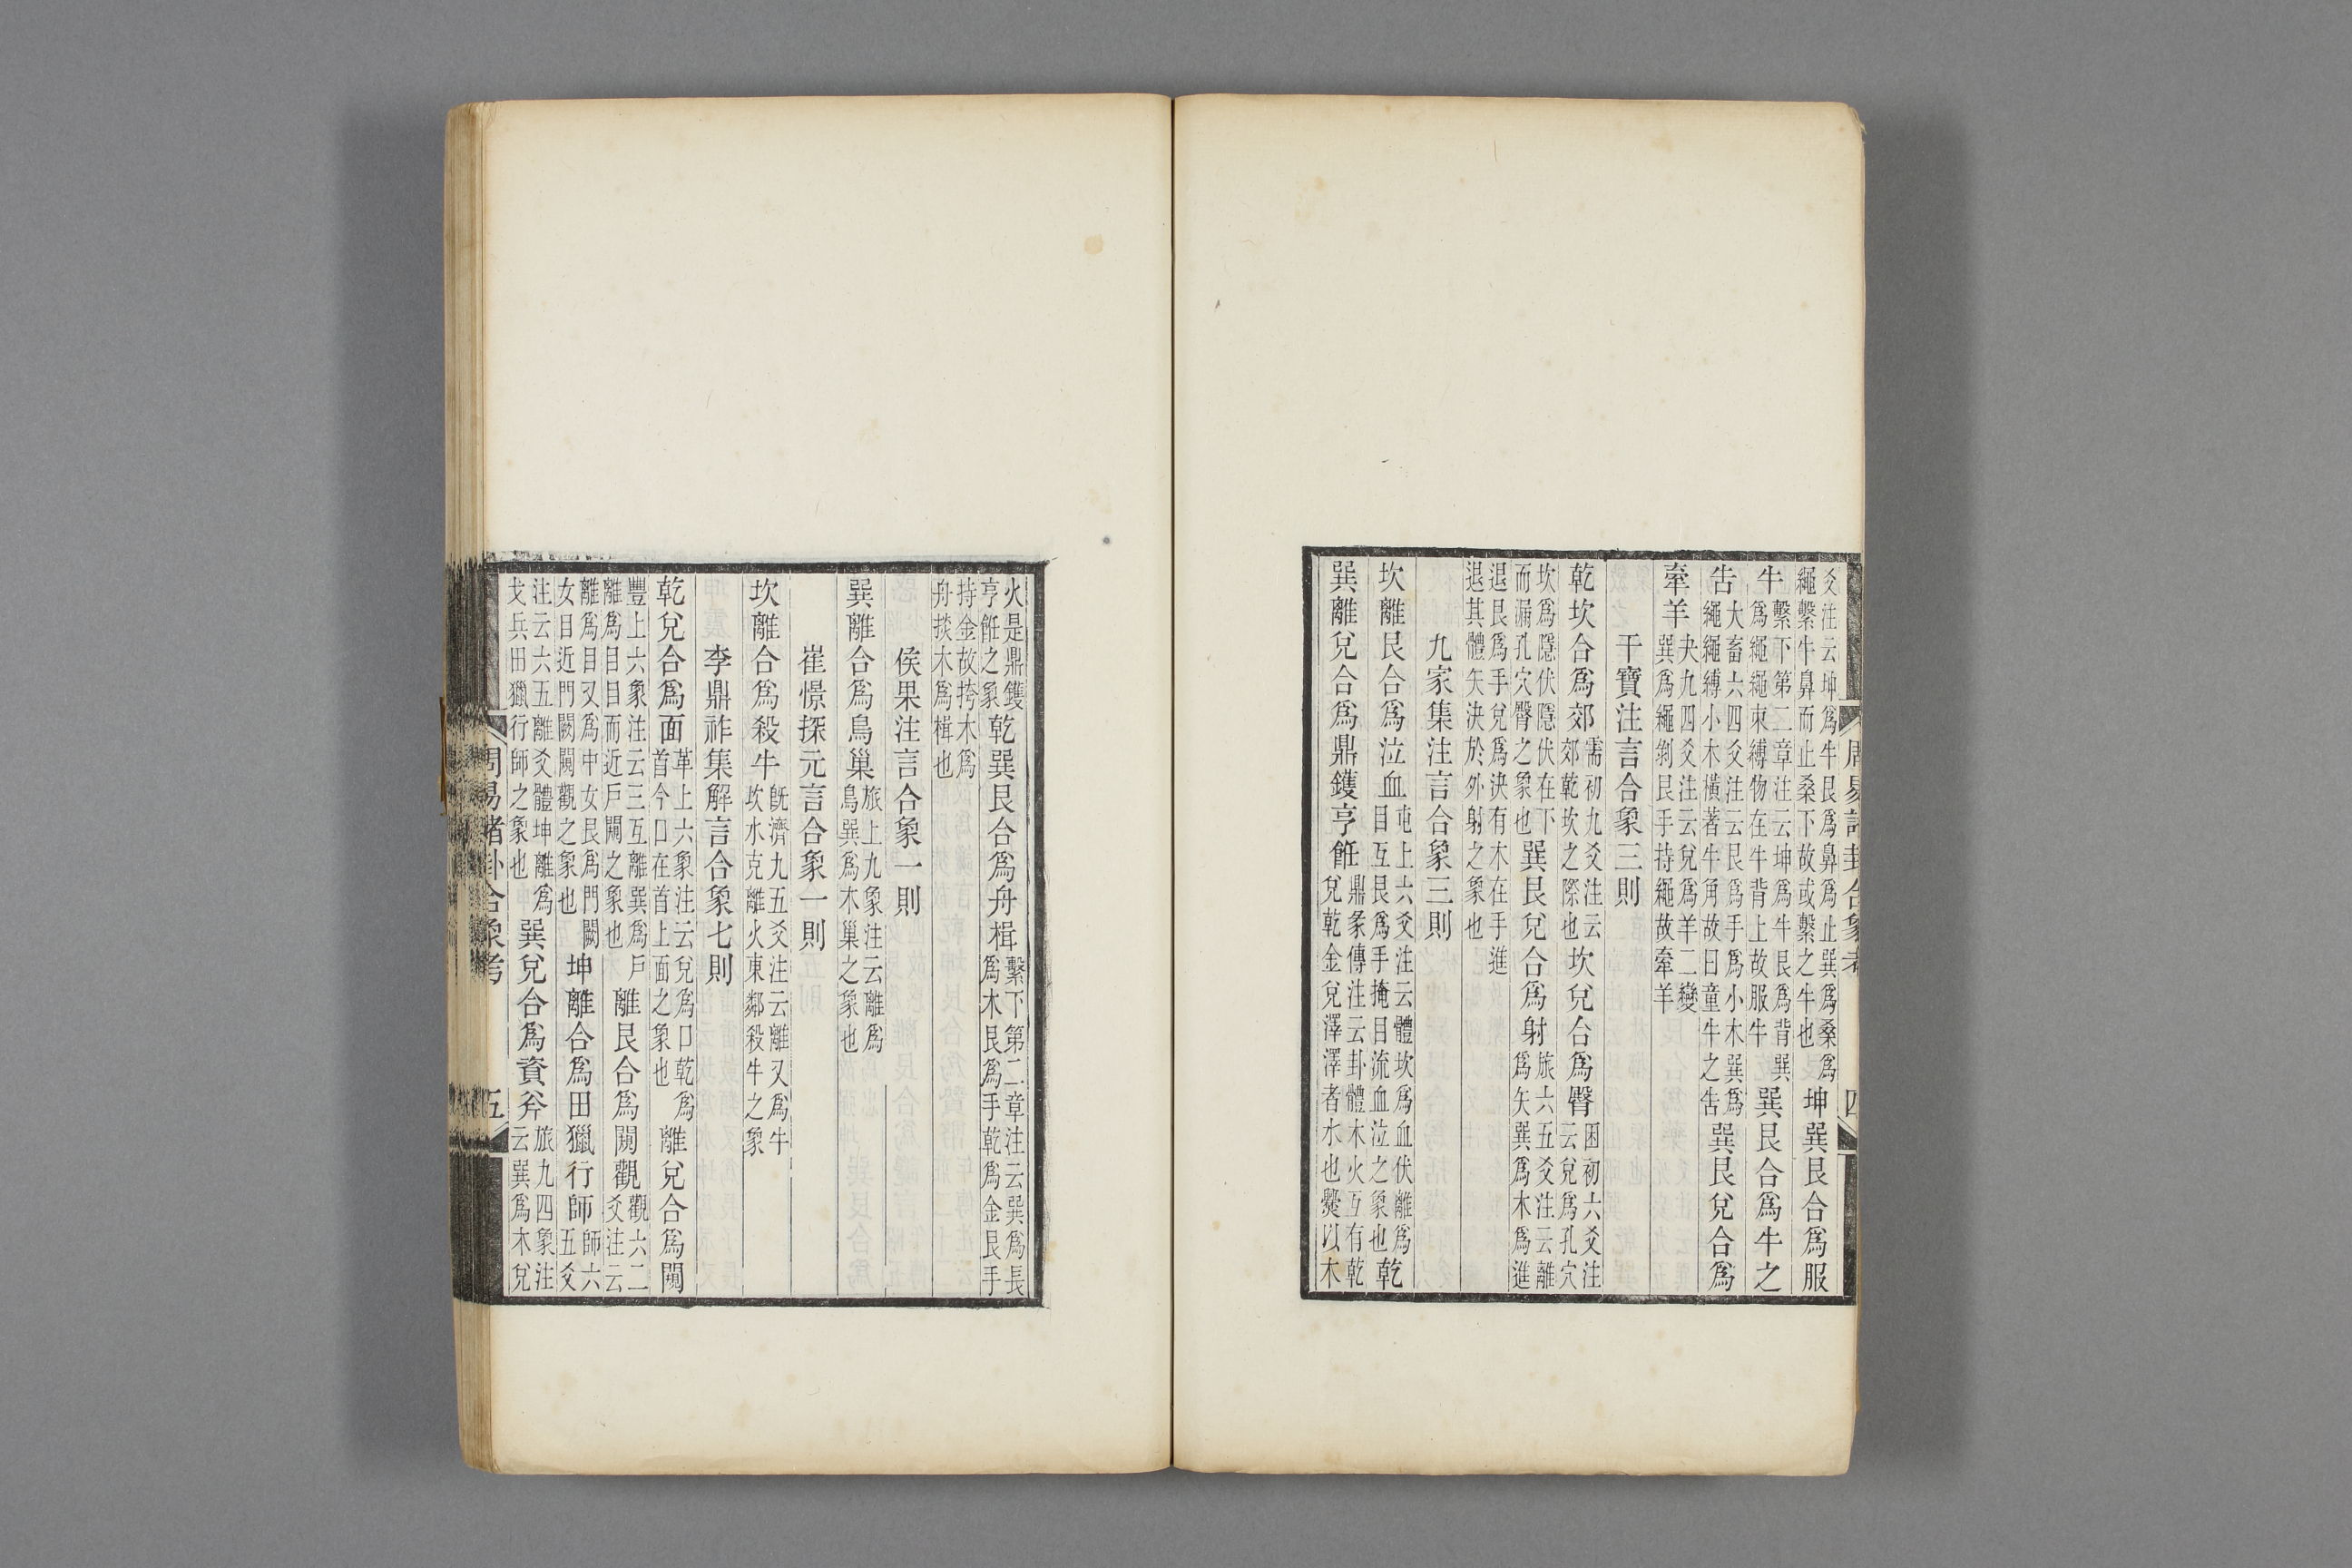 爻注云坤爲牛艮爲鼻爲止巽爲桑爲
繩繫牛鼻而止桑下故或繫之牛也
坤巽艮合爲服
牛
繫下第二章注云坤爲牛艮爲背巽
爲繩繩束縛物在牛背上故服牛
巽艮合爲牛之
告
大畜六四爻注云艮爲手爲小木巽爲
繩繩縛小木橫著牛角故曰童牛之告
巽艮兌合爲
牽羊
夬九四爻注云兌爲羊二變
巽爲繩剝艮手持繩故牽羊
干寶注言合象三則
乾坎合爲郊
需初九爻注云
郊乾坎之際也
坎兌合爲臀
困初六爻注
云兌爲孔穴
坎爲隱伏隱伏在下
而漏孔穴臀之象也
巽艮兌合爲射
旅六五爻注云離
爲矢巽爲木爲進
退艮爲手兌爲決有木在手進
退其體矢決於外射之象也
九家集注言合象三則
坎離艮合爲泣血
屯上六爻注云體坎爲血伏離爲
目互艮爲手掩目流血泣之象也
乾
巽離兌合爲鼎鑊亨飪
鼎彖傳注云卦體木火互有乾
兌乾金兌澤澤者水也爨以木
周易諸卦合象考 四
火是鼎鑊
亨飪之象
乾巽艮合爲舟楫
繫下第二章注云巽爲長
爲木艮爲手乾爲金艮手
持金故挎木爲
舟掞木爲楫也
侯果注言合象一則
巽離合爲鳥巢
旅上九象注云離爲
鳥巽爲木巢之象也
崔憬探元言合象一則
坎離合爲殺牛
旣濟九五爻注云離又爲牛
坎水克離火東鄰殺牛之象
李鼎祚集解言合象七則
乾兌合爲面
革上六象注云兌爲口乾爲
首今口在首上面之象也
離兌合爲闚
豐上六象注云三互離巽爲戶
離爲目目而近戶闚之象也
離艮合爲闚觀
觀六二
爻注云
離爲目又爲中女艮爲門闕
女目近門闕闚觀之象也
坤離合爲田獵行師
師六
五爻
注云六五離爻體坤離爲
戈兵田獵行師之象也
巽兌合爲資斧
旅九四象注
云巽爲木兌
周易諸卦合象考 五